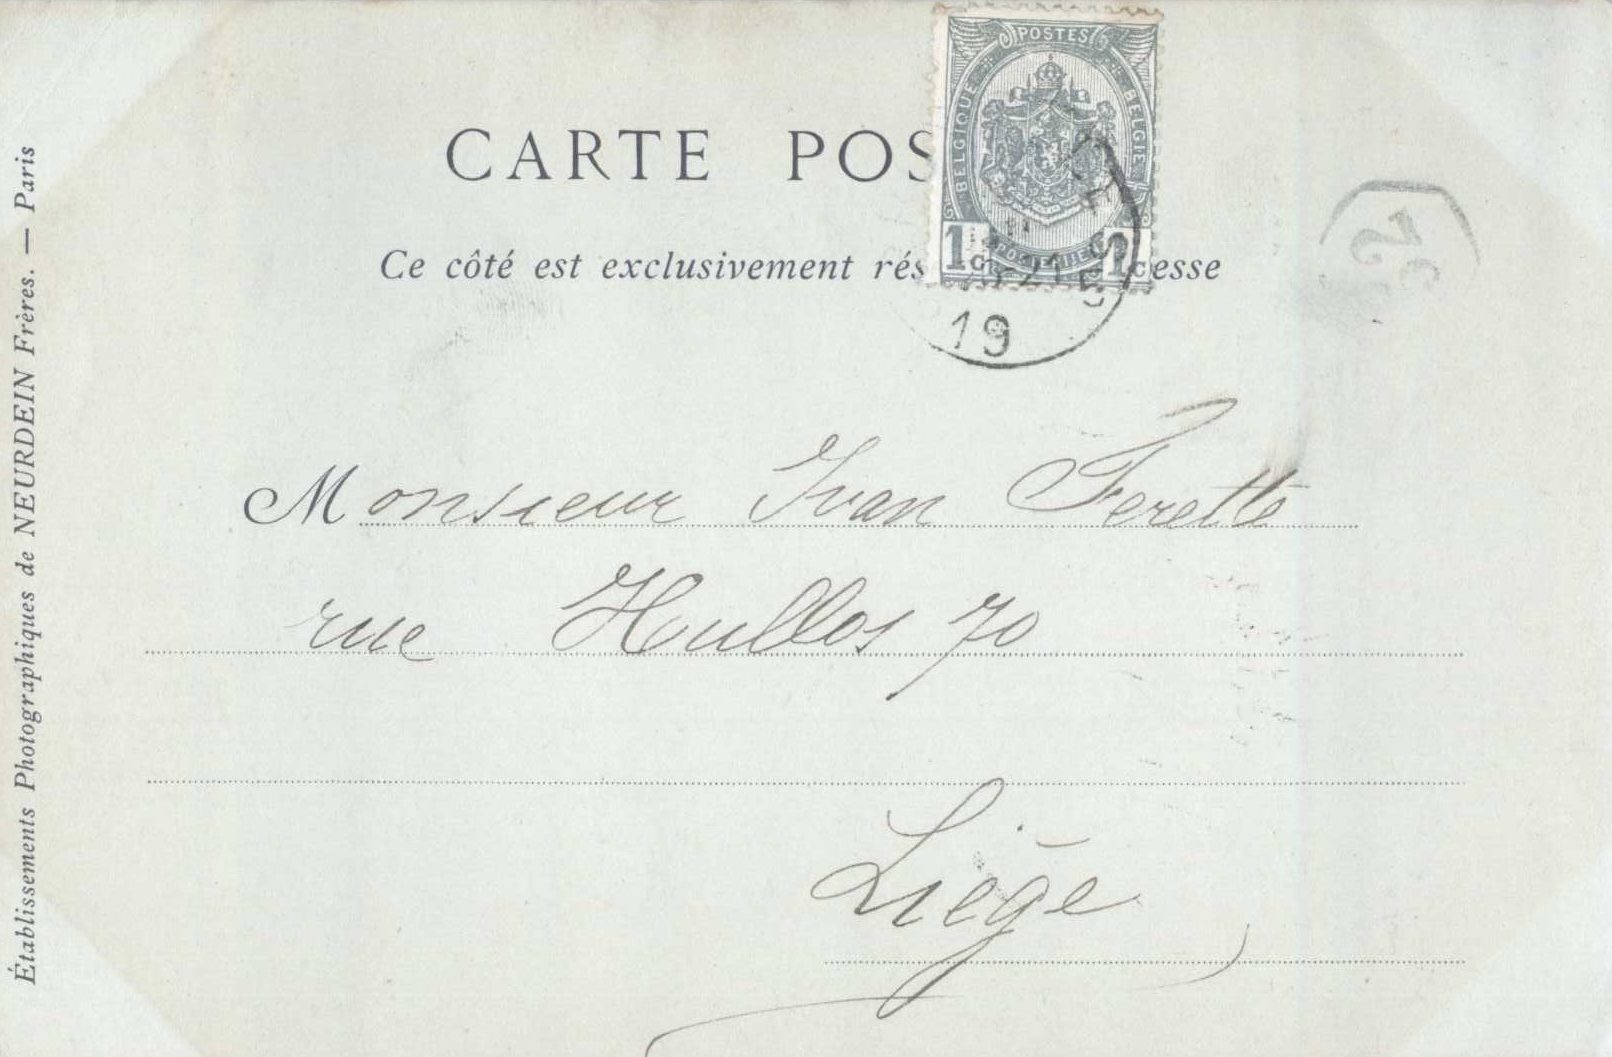 CARTE POS
Ce côté est exclusivement rés esse
POSTES
BELGIQUE
BELGIE
1 C 1 C
21
19
Monsieur Ivan Ferette
rue Hullos 70
Liége
Établissements Photographiques de NEURDEIN Frères. — Paris